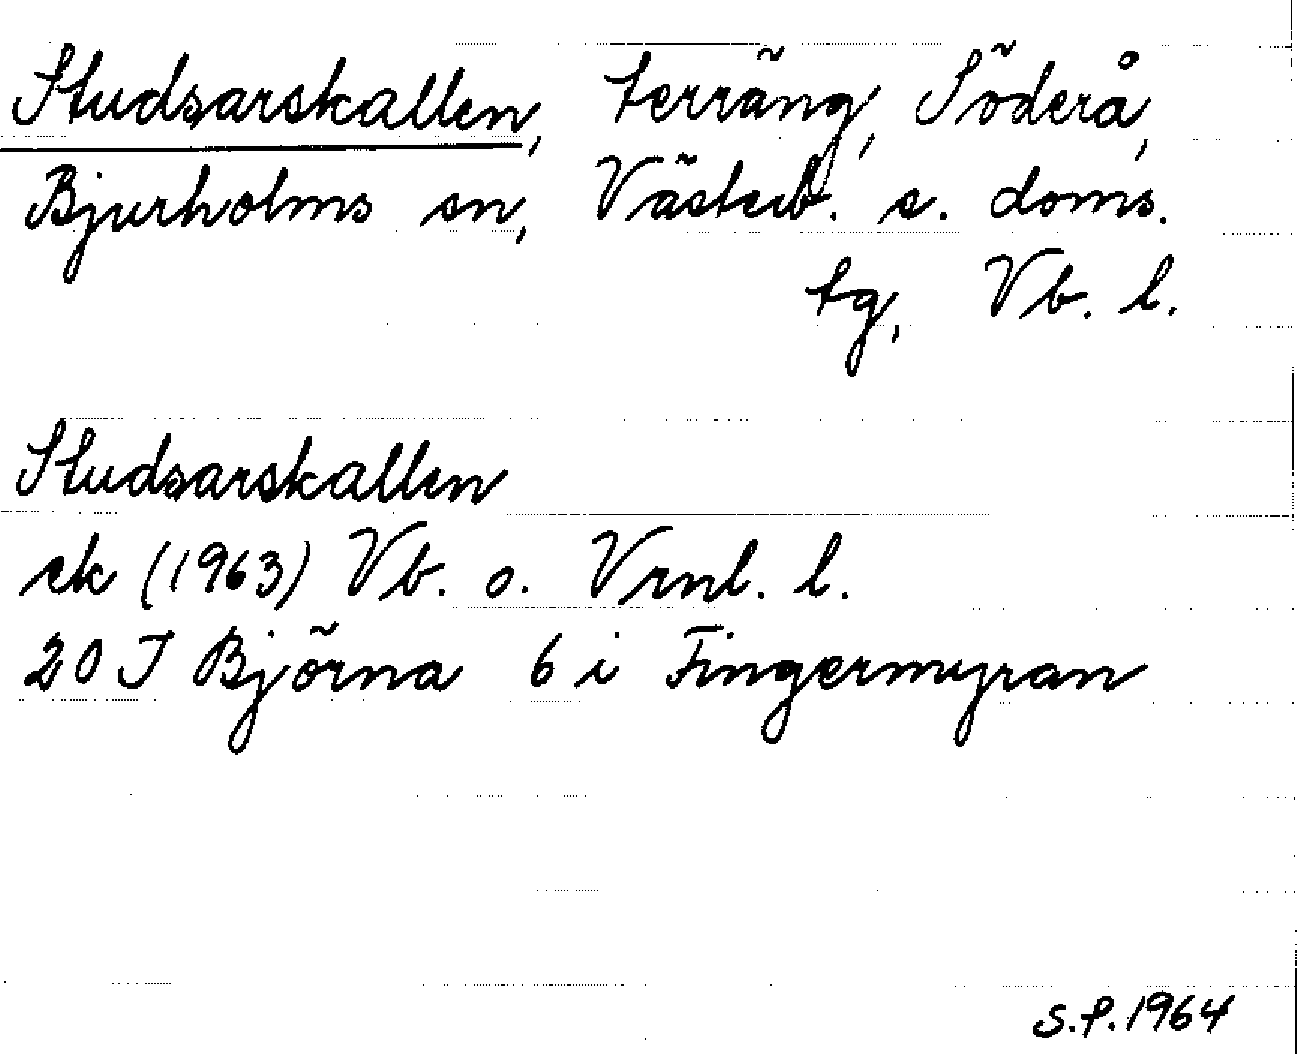 Studsarskallen, terräng, Söderå,
Bjurholms sn, Västerb. s. doms.
tg, Vb. l.
Studsarskallen
ek (1963) Vb. o. Vrnl. l.
20 J Björna 6 i Fingermyran
S.P. 1964